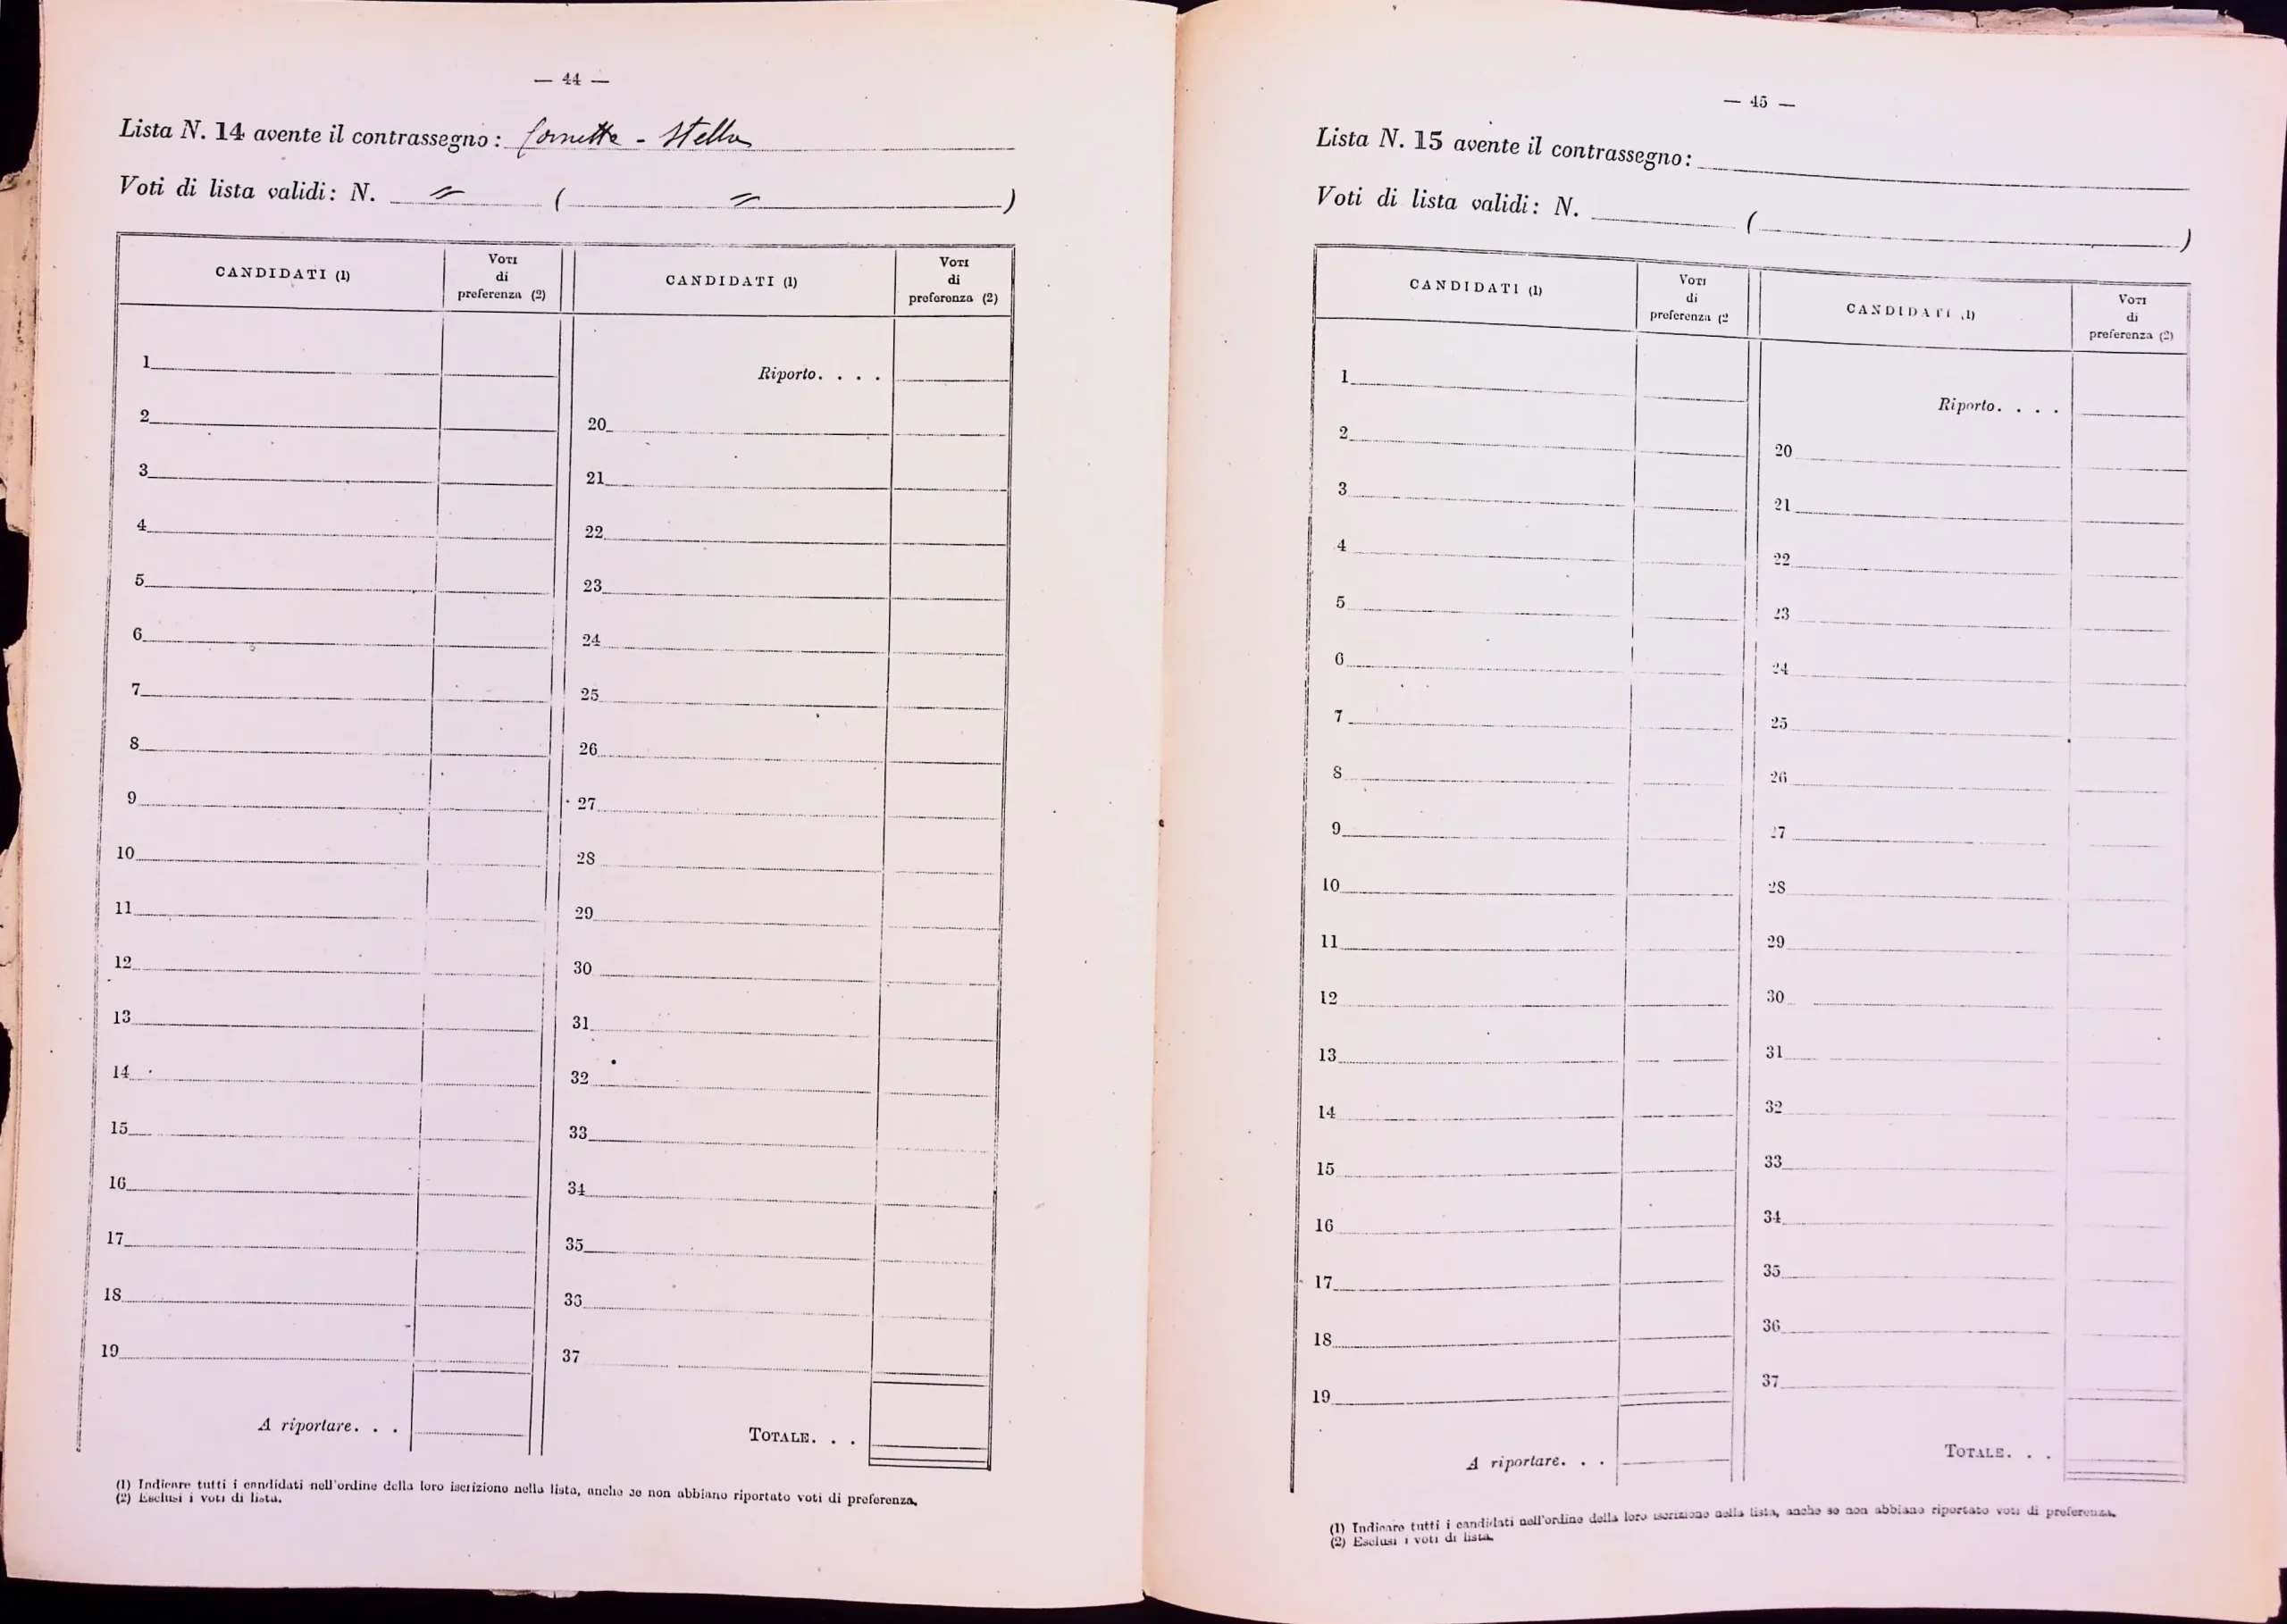 — 44 —
Lista N. 14 avente il contrassegno: Cornetta - Stella
Voti di lista validi: N. = ( = )
CANDIDATI (1)
Voti
di
preferenza (2)
CANDIDATI (1)
Voti
di
preferenza (2)
1
2
3
4
5
6
7
8
9
10
11
12
13
14
15
16
17
18
19
A riportare. . .
Riporto. . . .
20
21
22
23
24
25
26
27
28
29
30
31
32
33
34
35
36
37
TOTALE. . .
(1) Indicare tutti i candidati nell'ordine della loro iscrizione nella lista, anche se non abbiano riportato voti di preferenza.
(2) Esclusi i voti di lista.
— 45 —
Lista N. 15 avente il contrassegno:
Voti di lista validi: N. ( )
CANDIDATI (1)
Voti
di
preferenza (2
CANDIDATI (1)
Voti
di
preferenza (2)
1
2
3
4
5
6
7
8
9
10
11
12
13
14
15
16
17
18
19
A riportare. . .
Riporto. . . .
20
21
22
23
24
25
26
27
28
29
30
31
32
33
34
35
36
37
TOTALE. . .
(1) Indicare tutti i candidati nell'ordine della loro iscrizione nella lista, anche se non abbiano riportato voti di preferenza.
(2) Esclusi i voti di lista.